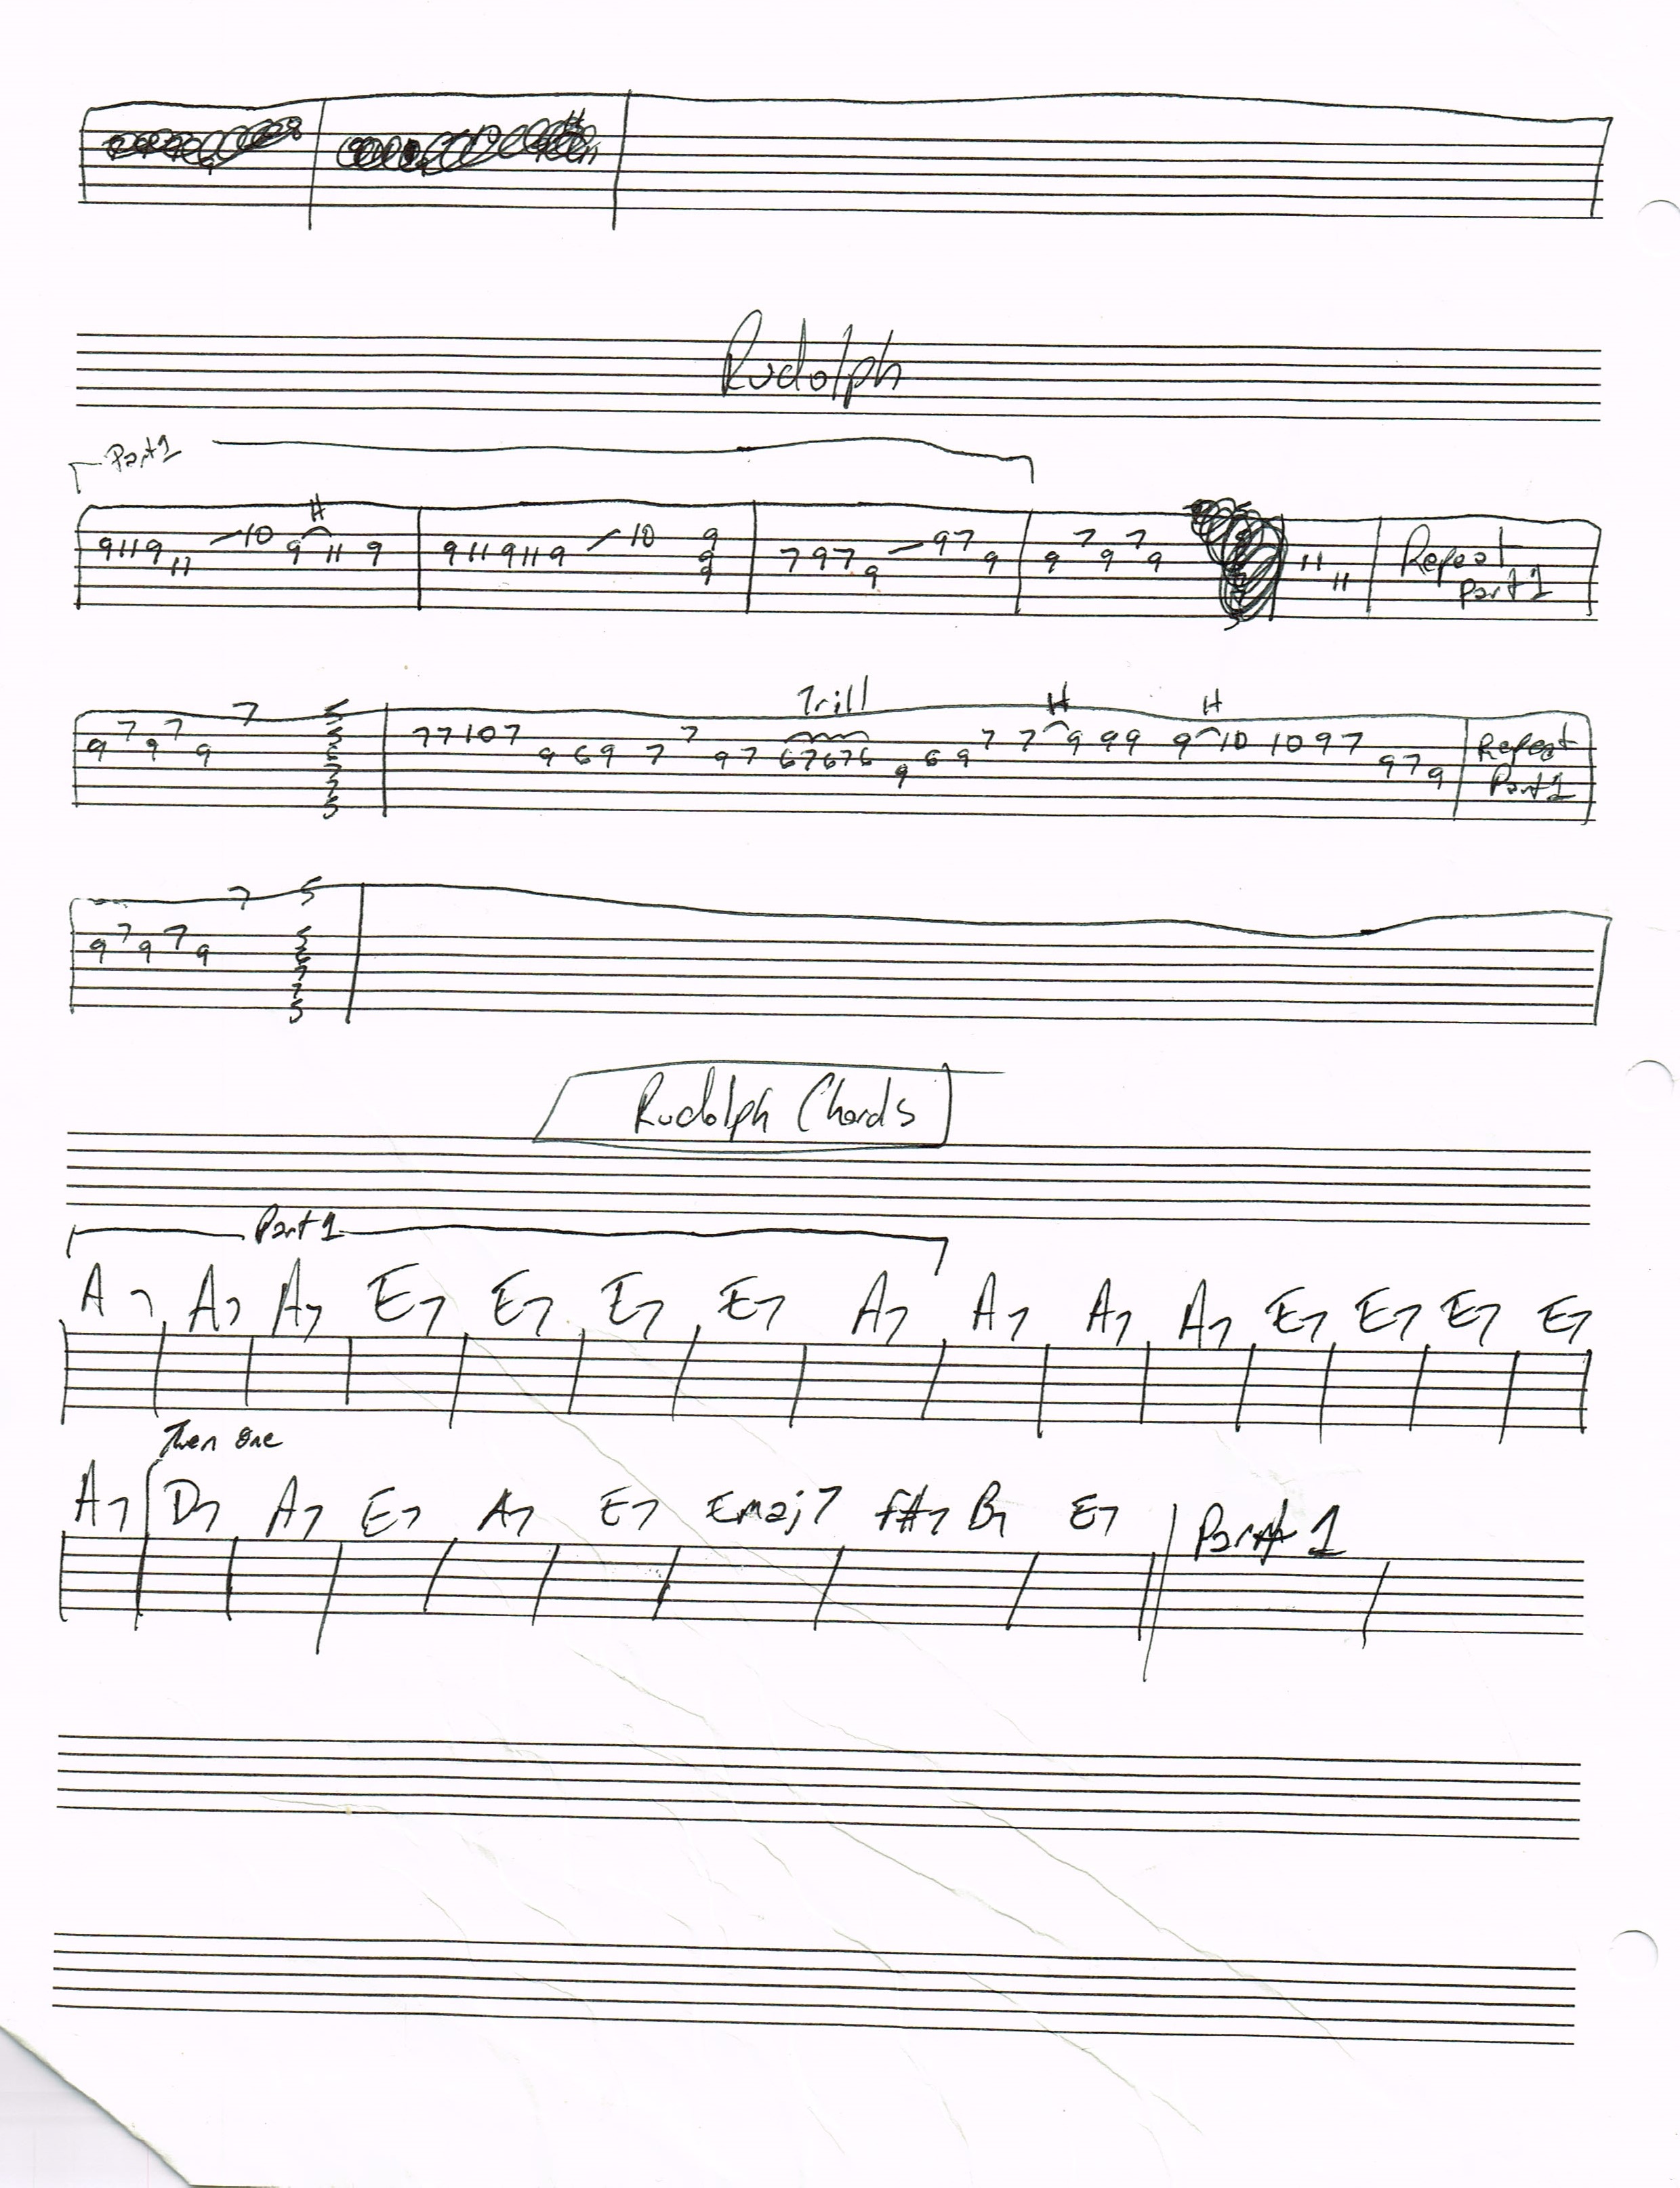 Rudolph
Part 1
H
9 11 9 11 10 9 11 9 9 11 9 11 9 10 9 9 9 7 9 7 9 9 7 9 9 7 9 7 9 11 11 Repeat Part 1
Trill H H
9 7 9 7 9 7 5 5 5 6 7 7 5 7 7 10 7 9 6 9 7 7 9 7 6 7 6 7 6 9 6 9 7 7 9 9 9 9 10 10 9 7 9 7 9 Repeat Part 1
9 7 9 7 9 7 5 5 6 7 7 5
Rudolph Chords
Part 1
A7 A7 A7 E7 E7 E7 E7 A7 A7 A7 A7 E7 E7 E7 E7
Then one
A7 D7 A7 E7 A7 E7 Emaj7 F#7 B7 E7 Part 1